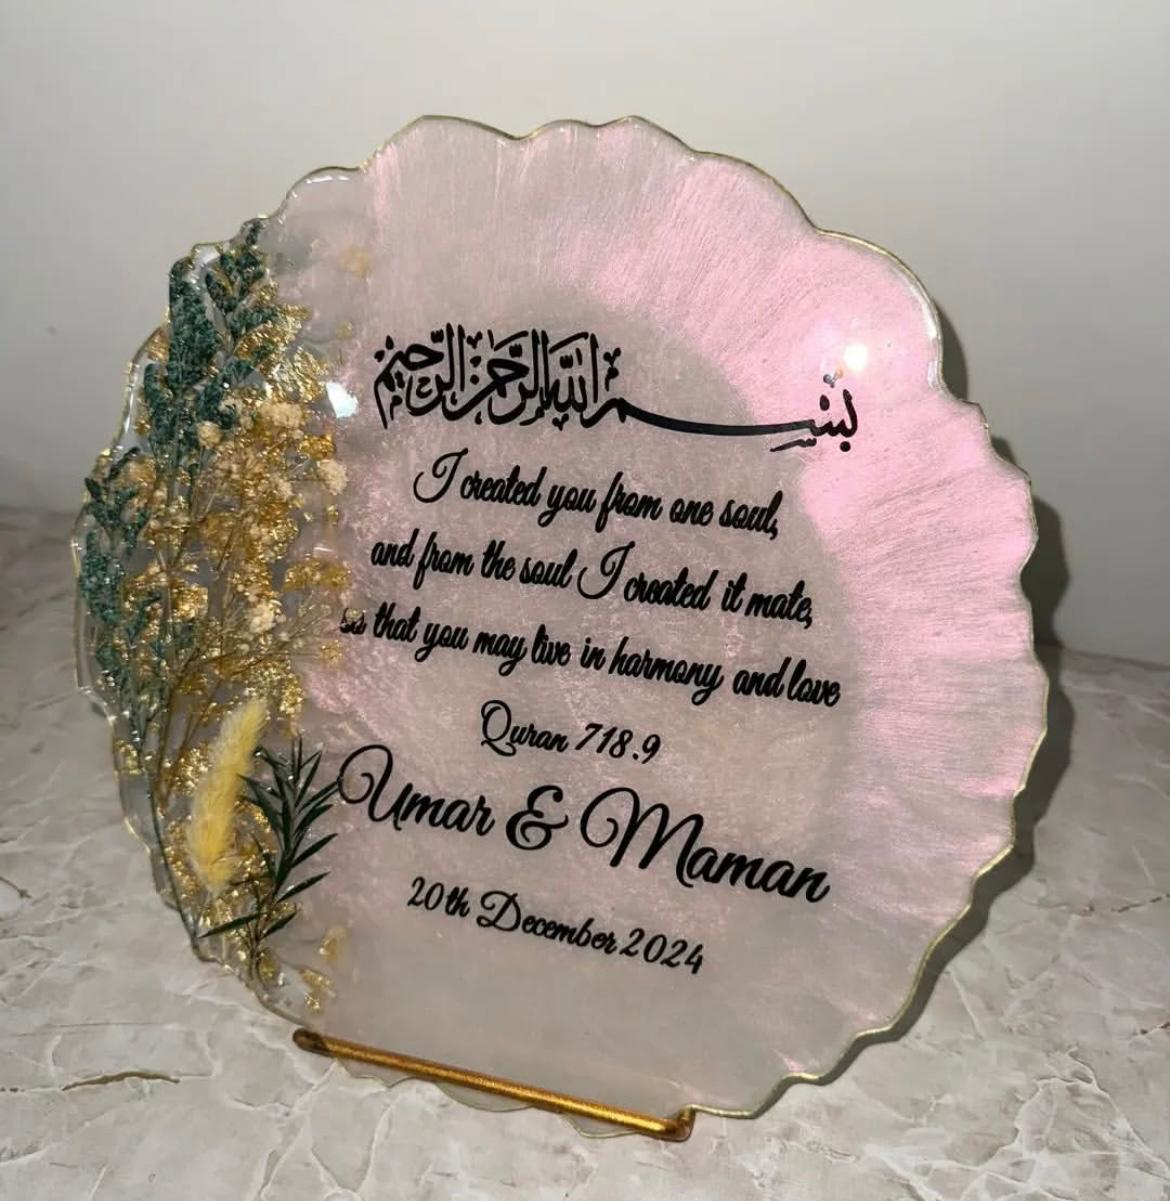 بسم الله الرحمن الرحيم
I created you from one soul,
and from the soul I created it mate,
so that you may live in harmony and love
Quran 718.9
Umar & Maman
20th December 2024